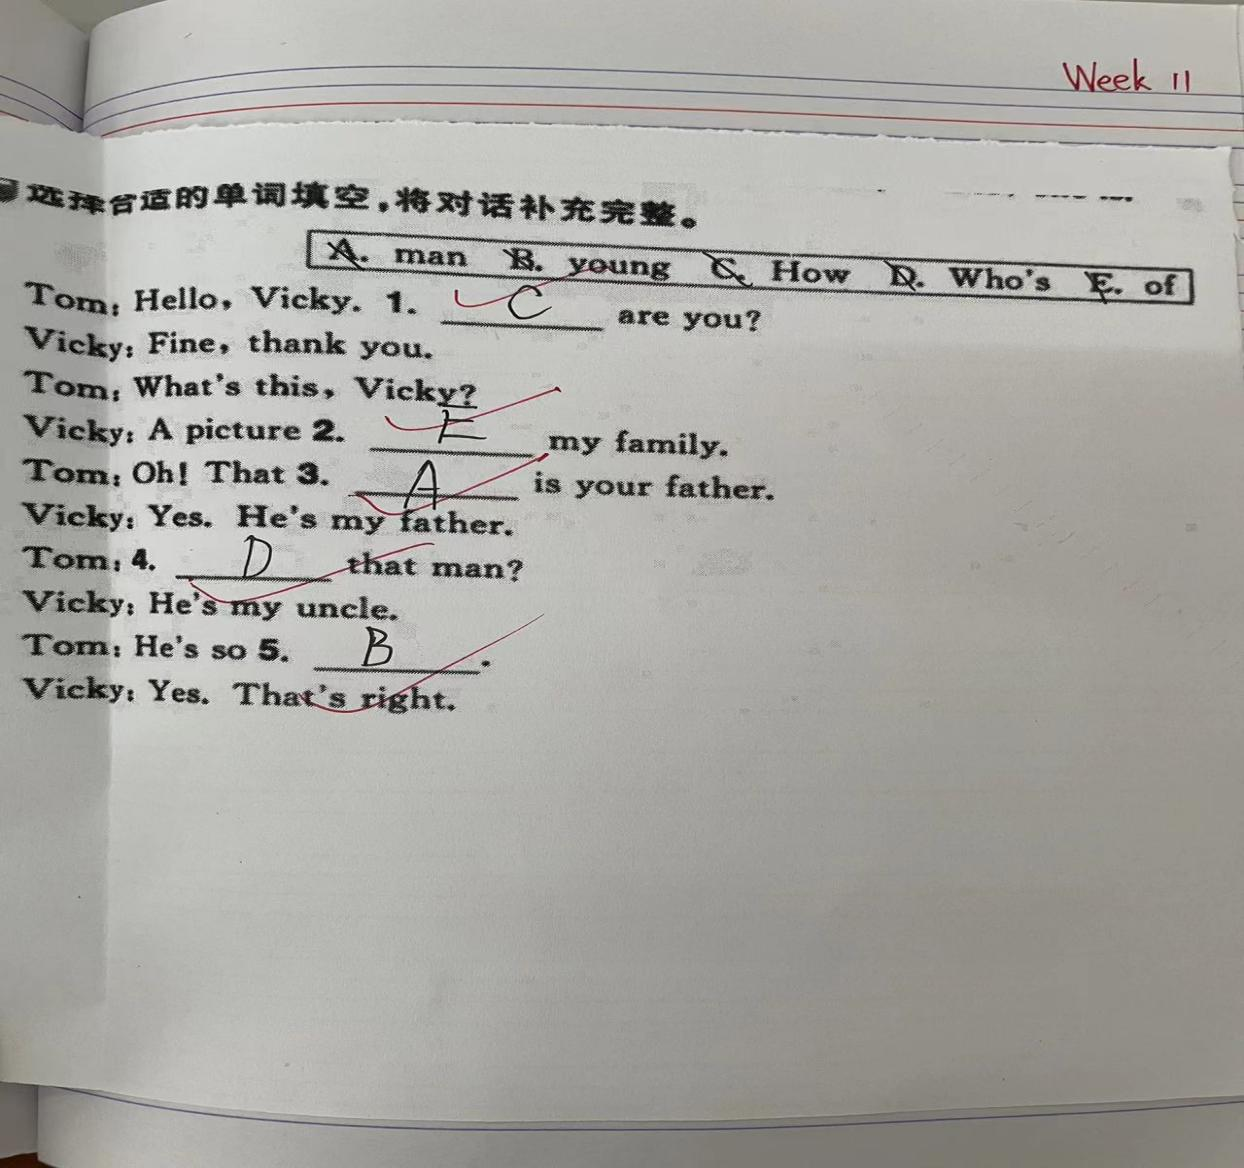 Week 11
选择合适的单词填空,将对话补充完整。
A. man B. young C. How D. Who's E. of
Tom: Hello, Vicky. 1. C are you?
Vicky: Fine, thank you.
Tom: What's this, Vicky?
Vicky: A picture 2. E my family.
Tom: Oh! That 3. A is your father.
Vicky: Yes. He's my father.
Tom: 4. D that man?
Vicky: He's my uncle.
Tom: He's so 5. B .
Vicky: Yes. That's right.